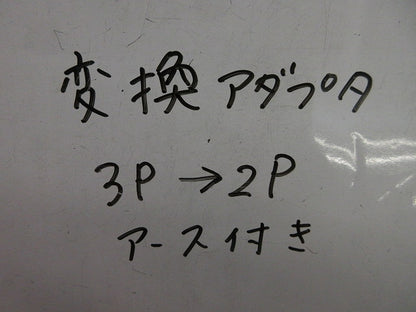 変換アダプタ
3P→2P
アース付き